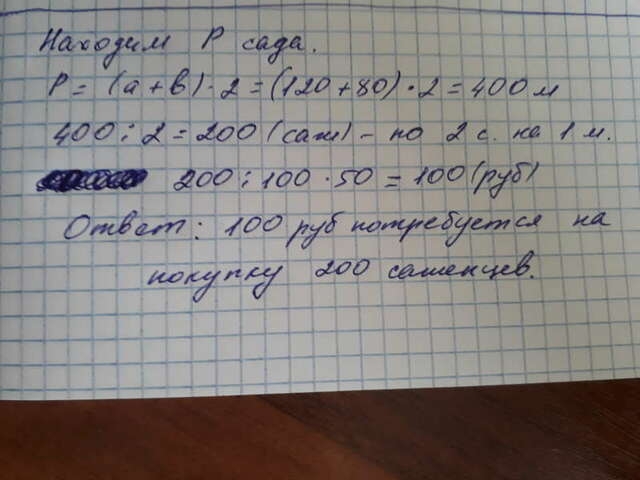 Находим P сада.
P = (a + b) · 2 = (120 + 80) · 2 = 400 м
400 : 2 = 200 (саж) - по 2 с. на 1 м.
200 : 100 · 50 = 100 (руб)
Ответ: 100 руб потребуется на
покупку 200 саженцев.